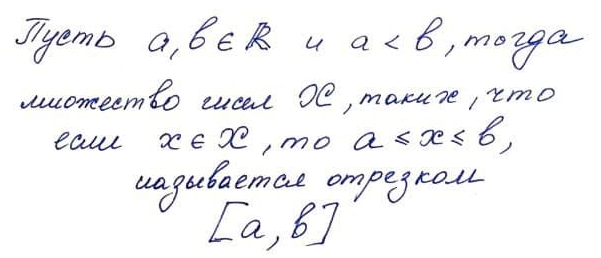 Пусть a, b ∈ ℝ и a < b, тогда
множество чисел X, таких, что
если x ∈ X, то a ≤ x ≤ b,
называется отрезком
[a, b]